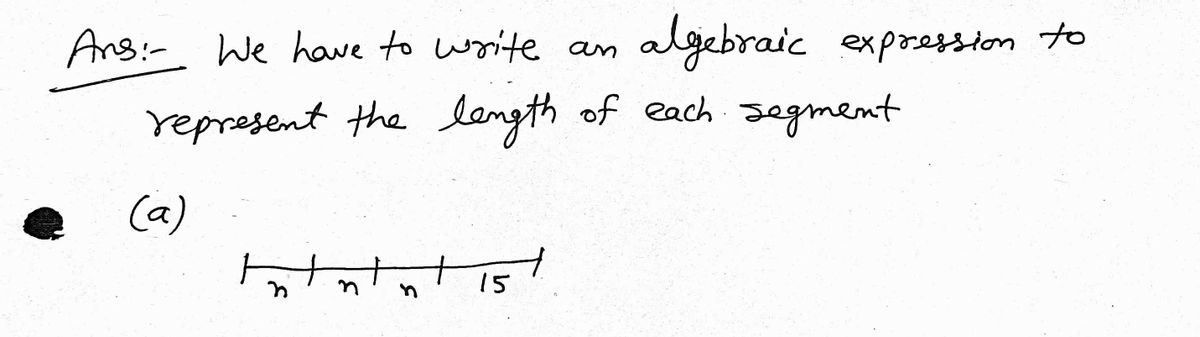 Ans:- We have to write an algebraic expression to
represent the length of each segment
(a)
n n n 15